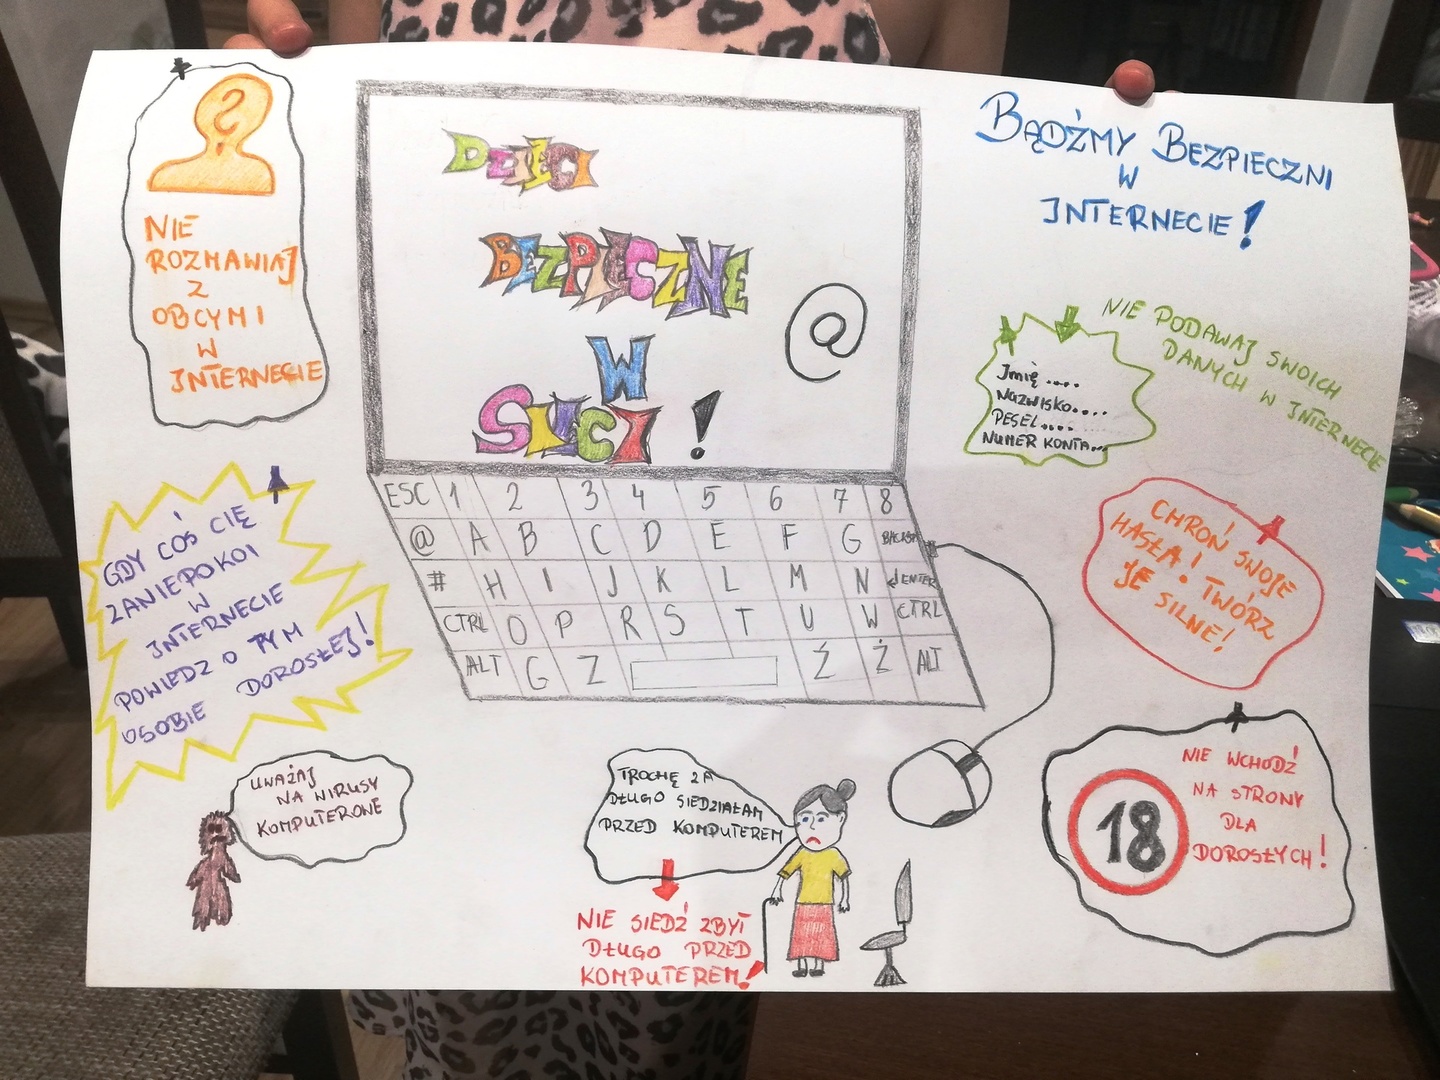 NIE
ROZMAWIAJ
Z
OBCYMI
W
INTERNECIE
DZIECI
BEZPIECZNE
W
SIECI !
@
BĄDŹMY BEZPIECZNI
W
INTERNECIE!
NIE PODAWAJ SWOICH
DANYCH W INTERNECIE
Imię ....
NAZWISKO....
PESEL....
NUMER KONTA...
GDY COŚ CIĘ
ZANIEPOKOI
W
INTERNECIE
POWIEDZ O TYM
OSOBIE DOROSŁEJ!
ESC 1 2 3 4 5 6 7 8
@ A B C D E F G BACKSP
# H I J K L M N ENTER
CTRL O P R S T U W CTRL
ALT G Z Ź Ż ALT
CHROŃ SWOJE
HASŁA! TWÓRZ
JE SILNE!
UWAŻAJ
NA WIRUSY
KOMPUTEROWE
TROCHĘ ZA
DŁUGO SIEDZIAŁAM
PRZED KOMPUTEREM
NIE SIEDŹ ZBYT
DŁUGO PRZED
KOMPUTEREM!
18
NIE WCHODŹ
NA STRONY
DLA
DOROSŁYCH!